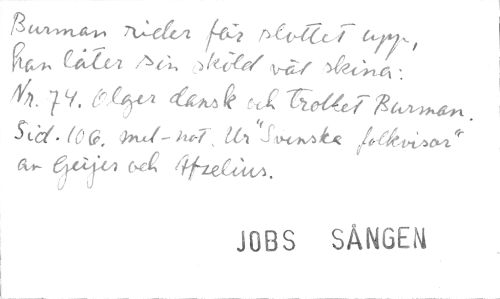 Burman rider för slottet upp,
han låter sin sköld väl skina:
Nr. 74. Olger dansk och trollet Burman.
Sid. 106. mel-not. Ur "Svenska folkvisor"
av Geijer och Afzelius.
JOBS SÅNGEN